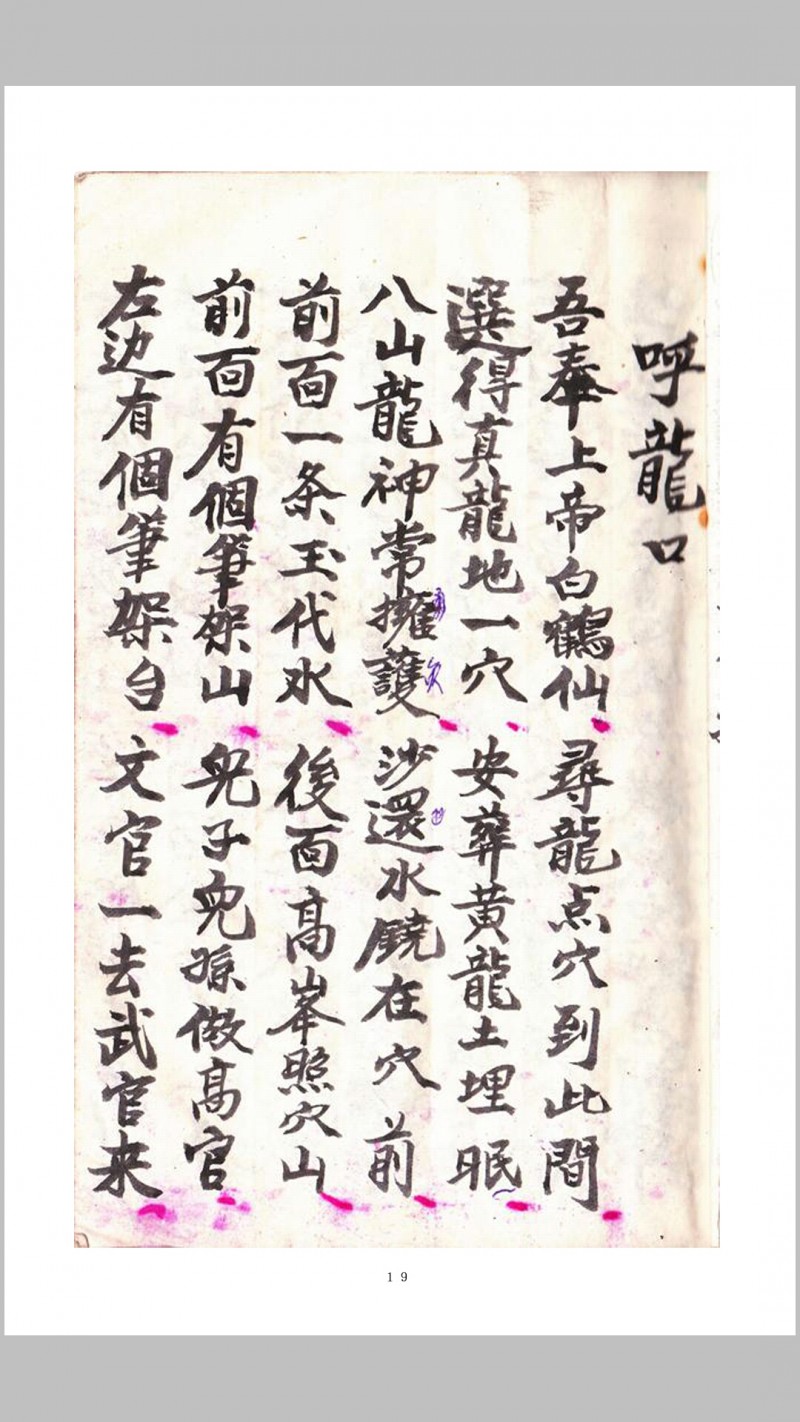 呼龍口
吾奉上帝白鶴仙 尋龍点穴到此間
選得真龍地一穴 安葬黄龍土埋眠
八山龍神常擁護 沙還水鐃在穴前
前面一条玉代水 後面高峯照穴山
前面有個筆架山 児子児孫做高官
左边有個筆架台 文官一去武官来
19